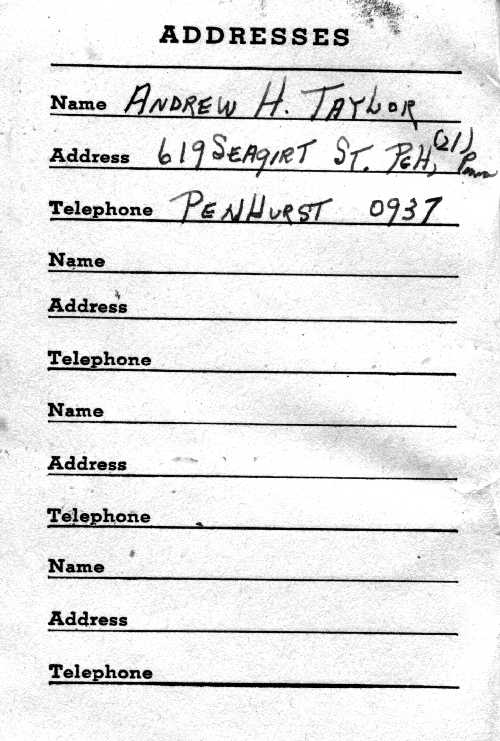 ADDRESSES
Name ANDREW H. TAYLOR
Address 619 SEAGIRT ST. PGH, (21), Penna
Telephone PENHURST 0937
Name
Address
Telephone
Name
Address
Telephone
Name
Address
Telephone